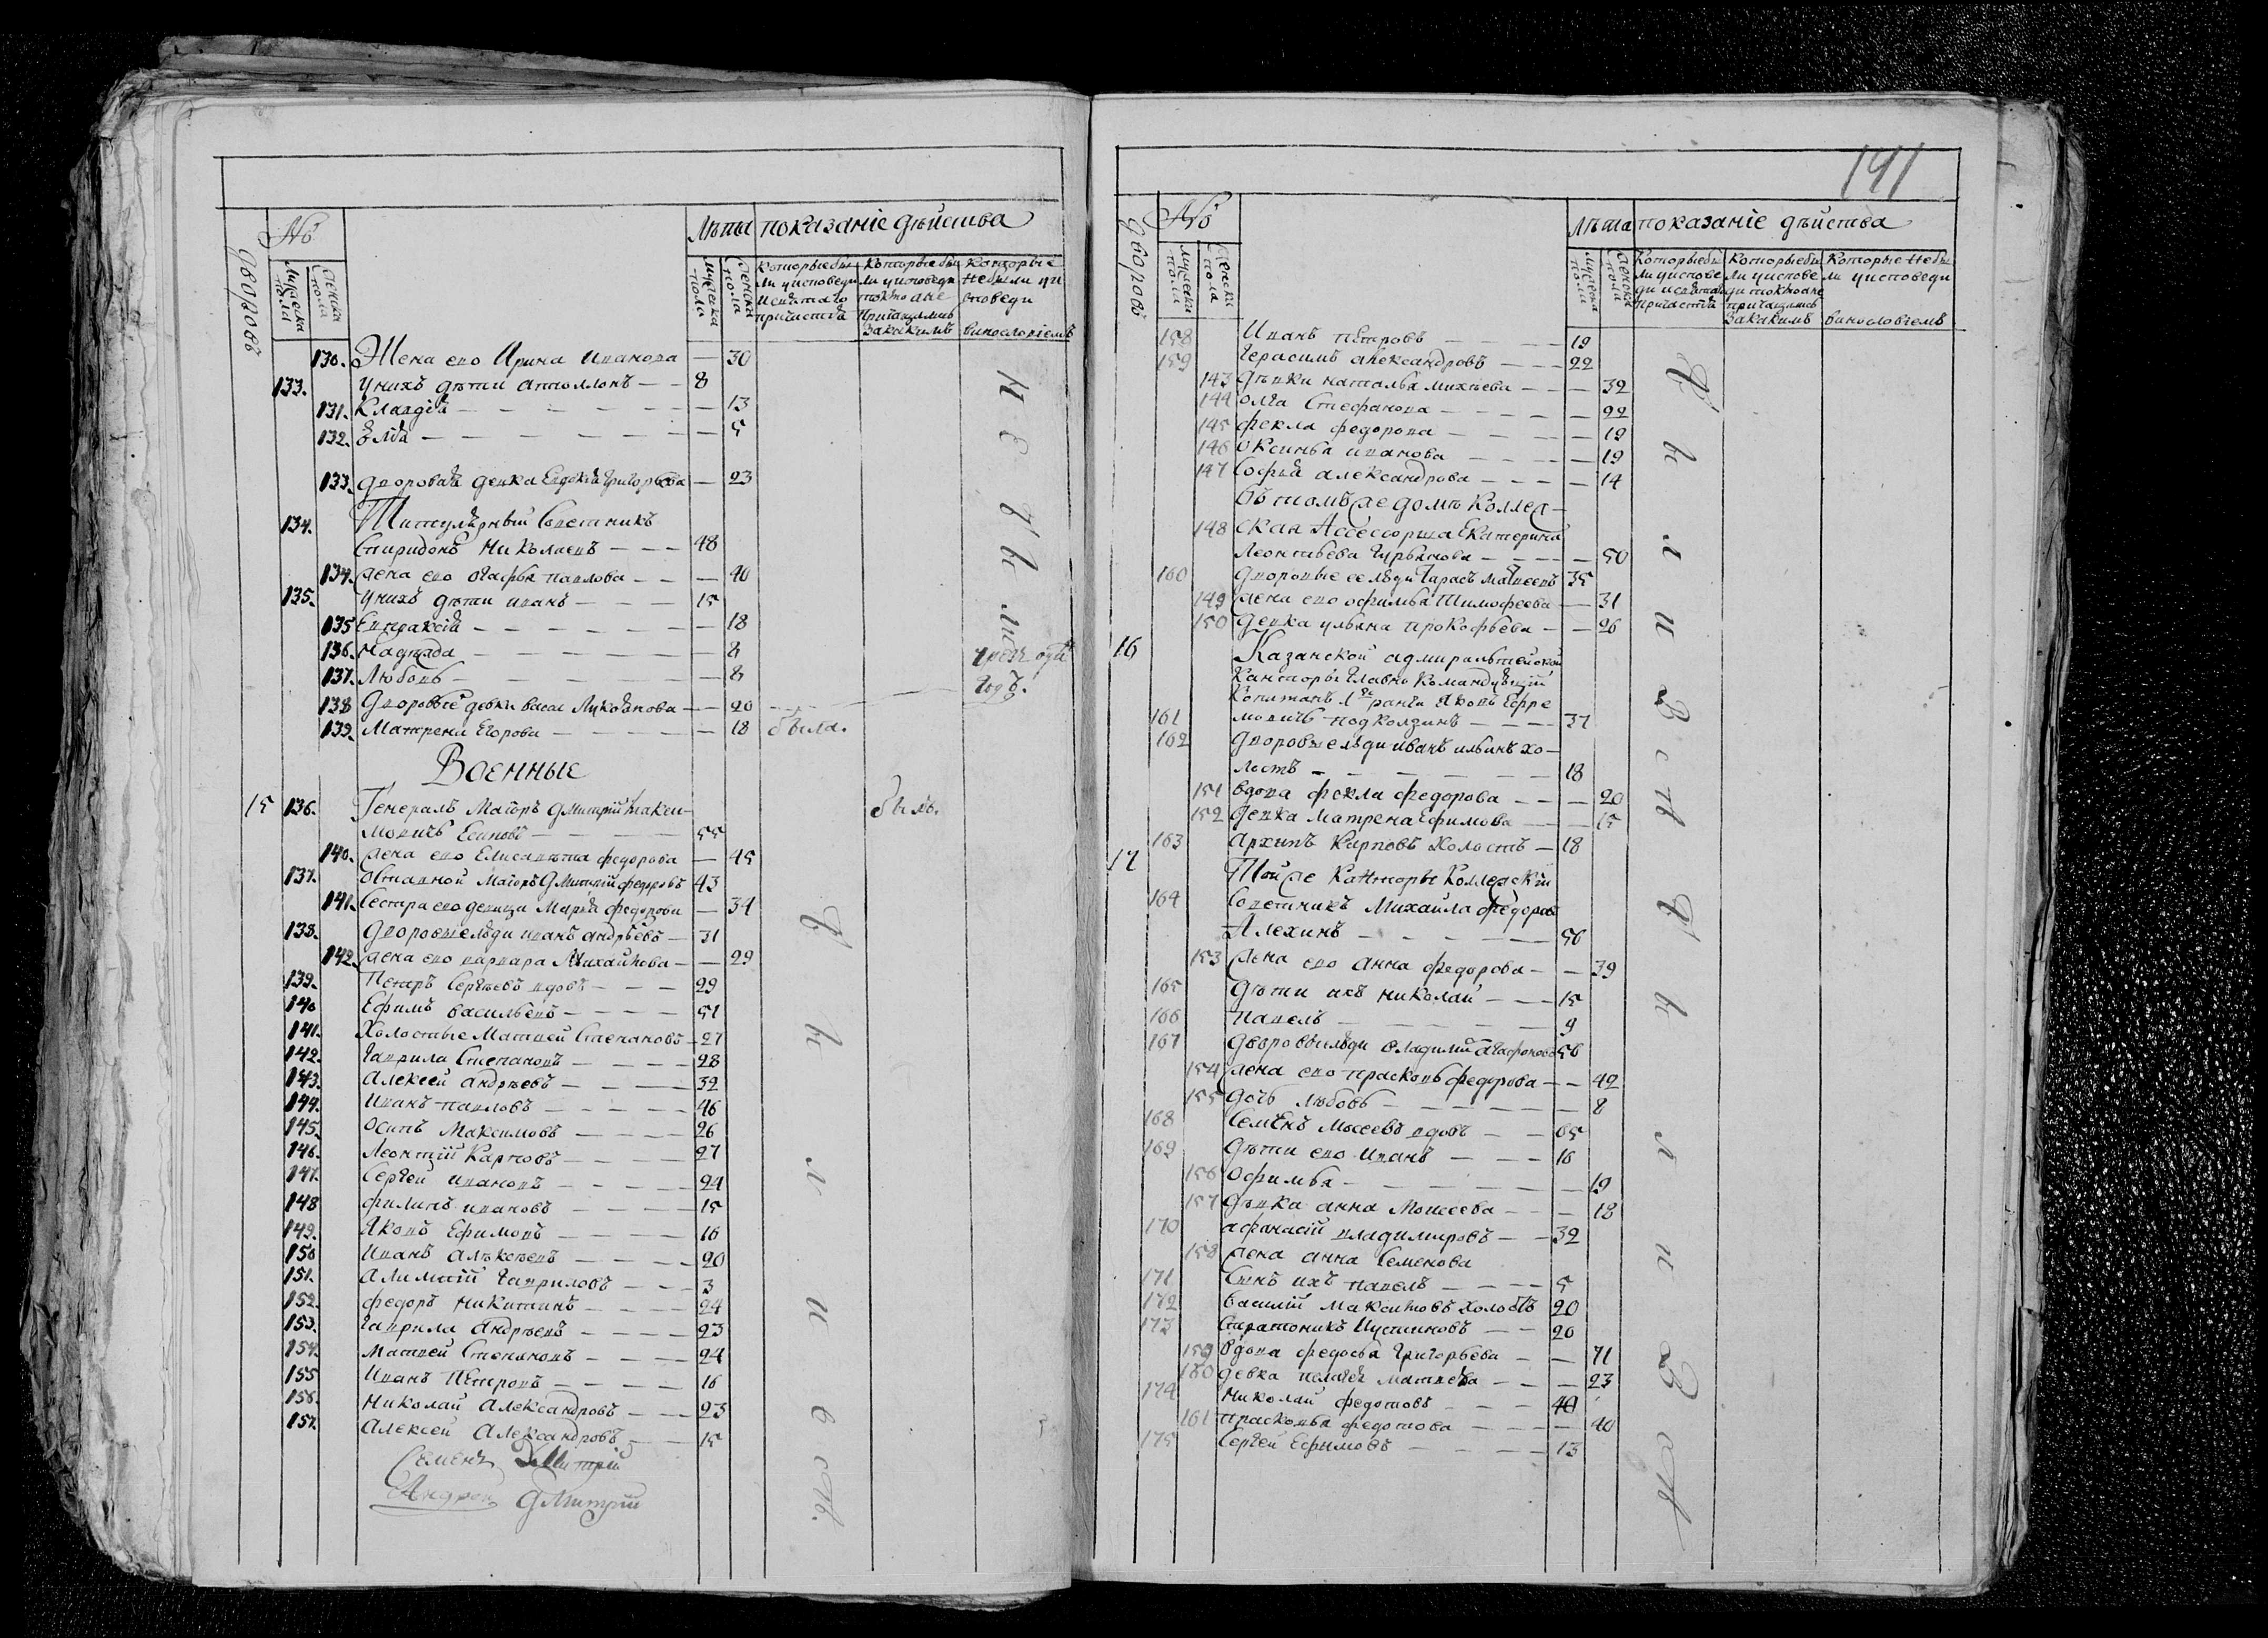 №
Дворовъ
Мужеска пола
Женска пола
Лѣты
показаніе дѣйства
Мужеска пола
Женска пола
которыебы
ли уисповеди
исвятаго
причастія
которыебы
ли уисповеди
токмо не
причащались
закакимъ
которые
небыли уи
споведи
винословіемъ
130. Жена ево Ирина Иванова — 30
133. Унихъ дѣти аполлонъ — — 8
131. Клавдія — 13
132. — 5
133. дворовая девка Григорьева — 23
134. Титулярный Советникъ
Спиридонъ Николаевъ — — — 48
134. жена ево Агафья павлова — — 40
135. Унихъ дѣти иванъ — — — 15
135 Евпраксія — 18
136. надежда — 8
137. Любовь — 8
чрезъ одинъ
годъ.
138 Дворовые девки васса Лукоянова — 20
139. Матрена Егорова — 18 была.
Военные
15 136. Генералъ Маіоръ Дмитрій
Есиповъ — 55
былъ.
140. жена ево Елисавета федорова — 45
137. Отставной Маіоръ Дмитрій федоровъ 43
141. Сестра ево девица Марья федорова — 34
138. Дворовые люди иванъ андрѣевъ — 31
142. жена ево варвара Михайлова — 29
139. Петръ Сергѣевъ вдовъ — — — 29
140 Ефимъ васильевъ — — — — 51
141. Холостые Матвей Степановъ — 27
142. Гаврила Степановъ — — — 28
143. Алексей андрѣевъ — — — 32
144. Иванъ павловъ — — — — 46
145. Осипъ Максимовъ — — — — 26
146. Леонтій Карповъ — — — — 27
147. Сергей ивановъ — — — — 24
148 филипъ ивановъ — — — — 15
149. Яковъ Ефимовъ — — — — 16
150 Иванъ алѣксѣевъ — — — — 20
151. Гавриловъ — — — 3
152. федоръ никитинъ — — — — 24
153. Гаврила андрѣевъ — — — — 23
154. Матвей Степановъ — — — 24
155 Иванъ Петровъ — — — — 16
156. Николай Александровъ — — — 23
157. Алексей Александровъ — — 15
Семенъ Дмитрій
Андрей Дмитрий
141
№
Дворовъ
Мужеска пола
Женска пола
лѣта
показаніе дѣйства
Мужеска пола
Женска пола
Которыебы
ли уиспове
ди исвятаго
причастія
Которыебы
ли уиспове
ди токмо не
причащались
закакимъ
Которые небы
ли уисповеди
винословіемъ
158 Иванъ петровъ — 19
159 Герасимъ александровъ — — — 22
143 девки наталья михѣева — — — 32
144 олга Стефанова — 22
145 фекла федорова — 19
146 оксинья иванова — 19
147 Софья александрова — — — 14
въ томъ же доме Коллеж—
148 ская Ассессорша Екатерина
Леонтьева Гурьянова — 50
160 Дворовые ее люди Тарасъ матвеевъ 35
149 жена ево офимья Тимофеева — 31
150 девка ульяна прокофьева — — 26
16 Казанской адмиралтейской
Канторы главно командующій
Капитанъ 1го ранга Яковъ Ефре
161 мовичь подколзинъ — — — 37
162 Дворовые люди иванъ ильинъ хо—
лостъ — 18
151 вдова фекла федорова — — — 20
152 девка матрена Ефимова — — 15
163 Архипъ Карповъ холостъ — 18
17 Той же Канторы Коллежскій
164 Советникъ Михайла федоровъ
Алехинъ — 50
153 жена ево анна федорова — — 39
165 Дѣти ихъ николай — — — 15
166 павелъ — 9
167 дворовые люди владимиръ агафоновъ 56
154 жена ево прасковья федорова — — 42
155 дочь любовь — 8
168 Семенъ Мосеевъ вдовъ — — 65
169 Дѣти ево иванъ — — — 16
156 Офимья — 19
157 Дѣвка анна Моисеева — — — 18
170 афанасій владимировъ — — 32
158 жена анна Семенова
171 Сынъ ихъ павелъ — — — 5
172 василій максимовъ холостъ 20
173 Стратоникъ Иустиновъ — — 20
159 вдова федосья Григорьева — — 71
160 девка пелагея матвеева — — — 23
174 николай федотовъ — — — 40
161 прасковья федотова — — — 40
175 Сергей Ефимовъ — 13